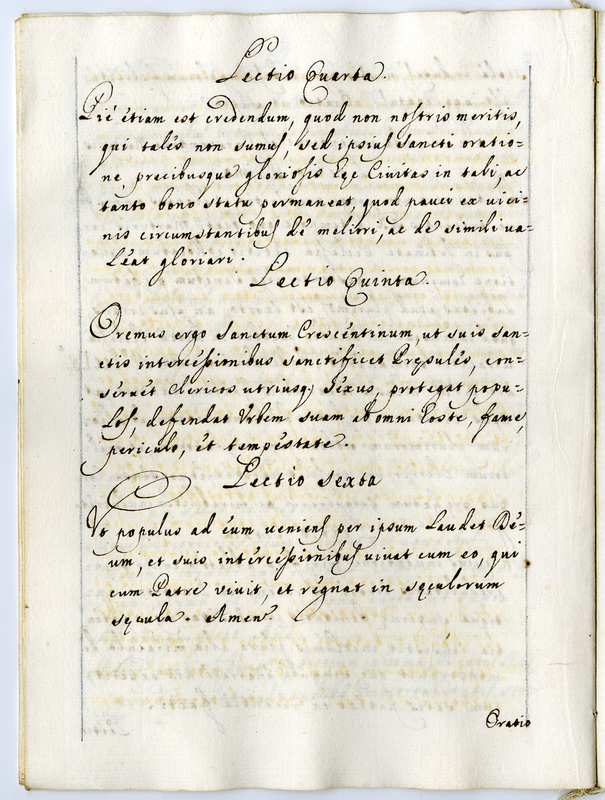 Lectio Quarta.
Pié étiam est credendum, quod non nostris meritis,
qui talés non sumus, sed ipsius sancti oratio=
ne, precibusque gloriosis Eqc Civitas in tali, ac
tanto bono statu permaneat, quod pauci ex vici=
nis circumstantibus dé meliori, ac de simili va=
léat gloriari.
Lectio Quinta.
Oremus ergo Sanctum Crescentinum, ut suis san=
ctis intercessionibus sanctificet Pręsulés, con=
servét Clericos utriusq; séxus, protegat popu=
los, defendat Urbem suam ab omni hoste, famé,
periculo, ét tempéstate.
Lectio sexta
Ut populus ad éum veniens per ipsum laudet Dé=
um, et suis intercessionibus vivat cum eo, qui
cum Patré vivit, et régnat in sęculorum
sęcula. Amen.
Oratio